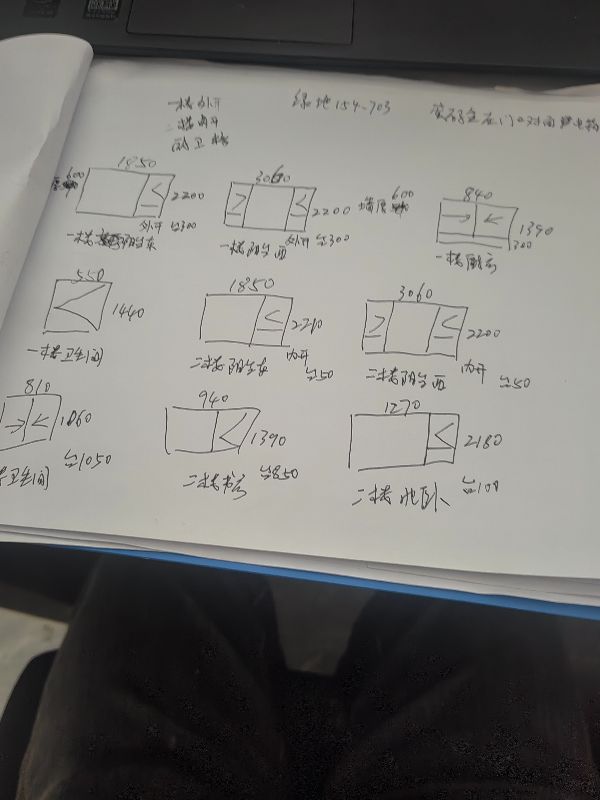 一楼外开
二楼内开
绿地154-703
1850
600
2200
外开 台300
3060
2200
外开 台300
一楼阳台西
墙厚
600
840
1390
300
550
1440
一楼卫生间
1850
内开
台50
二楼阳台东
3060
2200
内开
台50
二楼阳台西
810
1060
台1050
卫生间
940
1390
台850
二楼书房
1270
2180
台100
二楼北卧